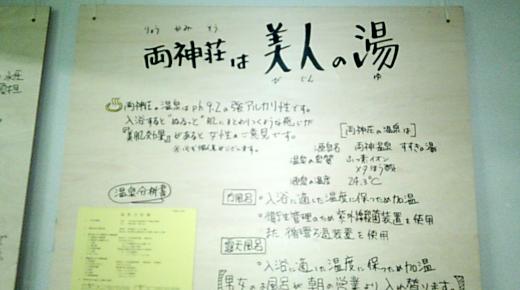 りょう かみ そう
両神荘は 美人の湯
び じん ゆ
両神荘の温泉はph9.2の強アルカリ性です。
入浴すると"ぬるっ"と肌にまとわりつくような感じが
『美肌効果』があると女性のご意見です。
[両神荘の温泉は]
源泉名 両神温泉 すずきの湯
温泉の泉質 ふっ素イオン
メタほう酸
源泉の温度 24.3℃
温泉分析書
内風呂
・入浴に適した温度に保つため加温
・衛生管理のため紫外線殺菌装置を使用
また 循環ろ過装置を使用
露天風呂
・入浴に適した温度に保つため加温
男女のお風呂が朝の営業より入れ替ります。